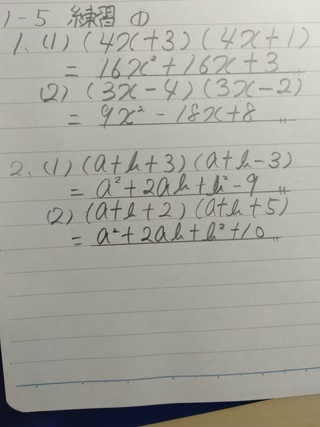 1-5 練習 ①
1. (1) (4x+3)(4x+1)
= 16x²+16x+3
(2) (3x-4)(3x-2)
= 9x²-18x+8 〃
2. (1) (a+b+3)(a+b-3)
= a²+2ab+b²-9 〃
(2) (a+b+2)(a+b+5)
= a²+2ab+b²+10 〃